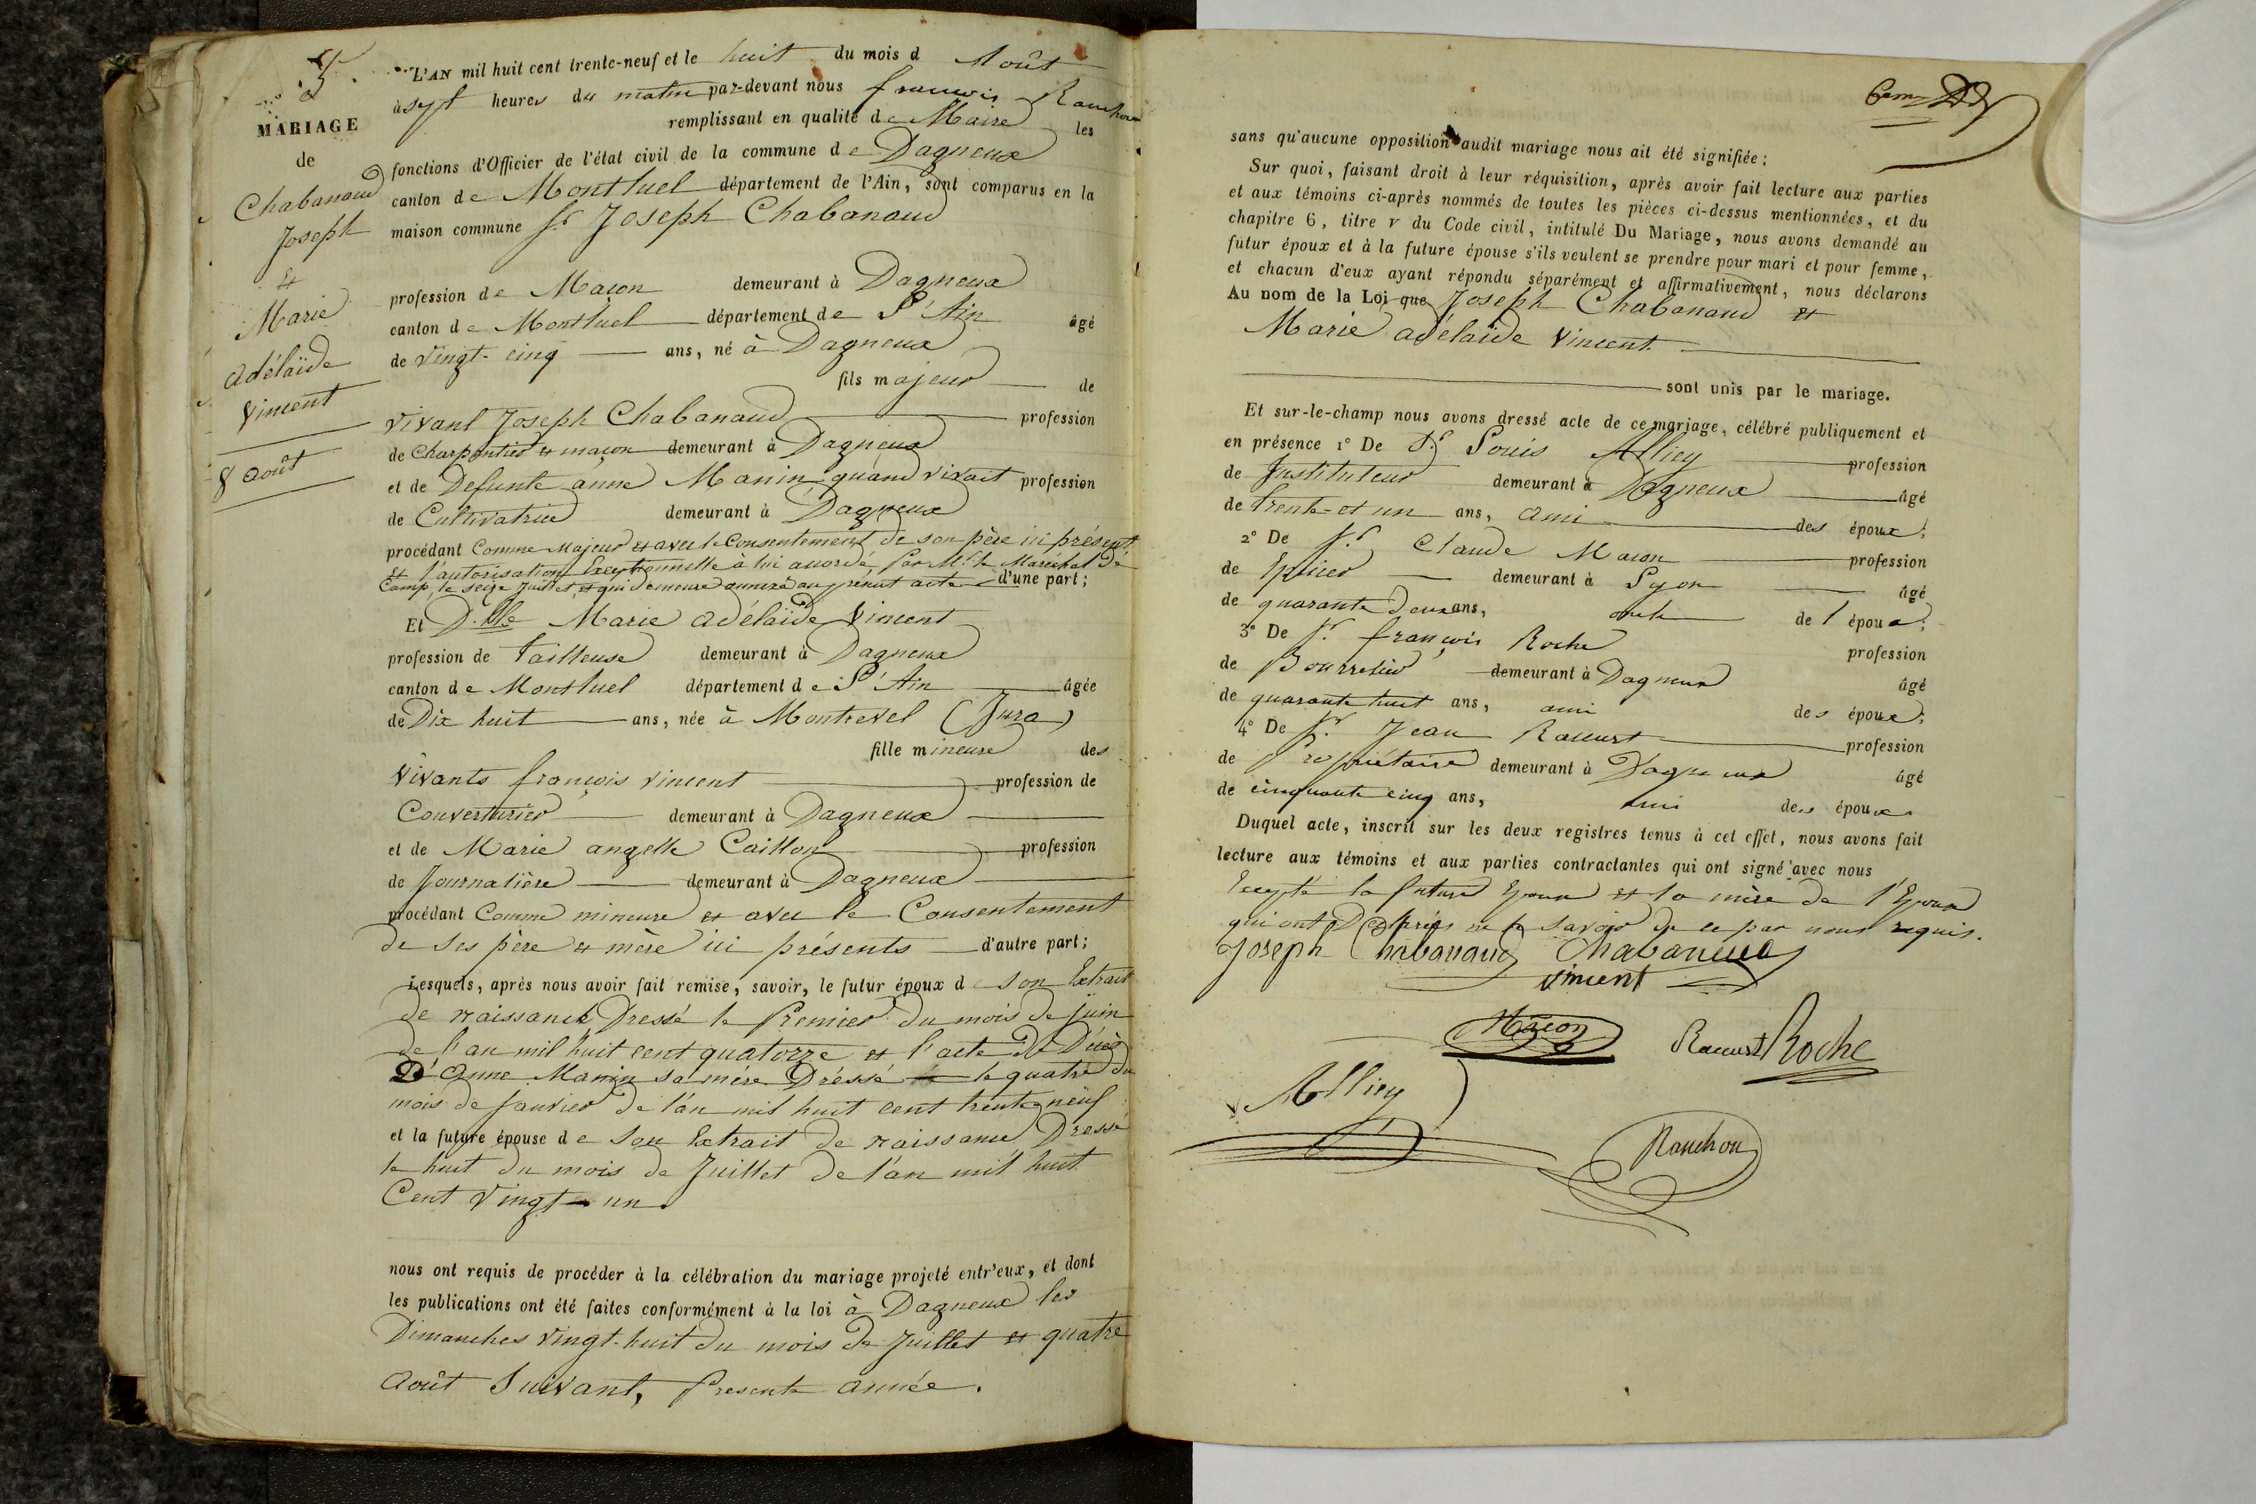 5.
MARIAGE
de
Chabanaud
Joseph
et
Marie
adélaïde
Vincent
8 août
L'AN mil huit cent trente-neuf et le huit du mois d Août
à sept heures du matin par-devant nous françois Rauchon
remplissant en qualité de Maire les
fonctions d'Officier de l'état civil de la commune de Dagneux
canton de Montluel département de l'Ain, sont comparus en la
maison commune Sr Joseph Chabanaud
profession de Macon demeurant à Dagneux
canton de Montluel département de l'Ain âgé
de vingt-cinq ans, né à Dagneux
fils majeur de
vivant Joseph Chabanaud profession
de Charpentier et maçon demeurant à Dagneux
et de Defunte anne Manin quand vivait profession
de Cultivatrice demeurant à Dagneux
procédant Comme Majeur et avec le Consentement de son père ici présent
et l'autorisation Exceptionnelle à lui accordé, par Mr le Maréchal de
Camp, le seize Juillet, et qui demeure annexé au présent acte d'une part;
Et D.lle Marie adélaïde Vincent
profession de Tailleuse demeurant à Dagneux
canton de Montluel département de l'Ain âgée
de Dix huit ans, née à Montrevel (Jura)
fille mineure des
Vivants françois vincent profession de
Couverturier demeurant à Dagneux
et de Marie angelle Caillon profession
de Journalière demeurant à Dagneux
procédant Comme mineure et avec le Consentement
de ses père et mère ici présents d'autre part;
Lesquels, après nous avoir fait remise, savoir, le futur époux de son Extrait
de naissance Dressé le Premier du mois de juin
de l'an mil huit cent quatorze et l'acte de Décès
D'Anne Manin sa mère Dréssé le quatre du
mois de Janvier de l'an mil huit cent trente neuf
et la future épouse de son Extrait de naissance Dressé
le huit du mois de Juillet de l'an mil huit
Cent vingt-un
nous ont requis de procéder à la célébration du mariage projeté entr'eux, et dont
les publications ont été faites conformément à la loi à Dagneux les
Dimanches vingt-huit du mois de Juillet et quatre
août Suivant, presente année.
sans qu'aucune opposition audit mariage nous ait été signifiée;
Sur quoi, faisant droit à leur réquisition, après avoir fait lecture aux parties
et aux témoins ci-après nommés de toutes les pièces ci-dessus mentionnées, et du
chapitre 6, titre V du Code civil, intitulé Du Mariage, nous avons demandé au
futur époux et à la future épouse s'ils veulent se prendre pour mari et pour femme,
et chacun d'eux ayant répondu séparément et affirmativement, nous déclarons
Au nom de la Loi que Joseph Chabanaud et
Marie adélaïde Vincent
sont unis par le mariage.
Et sur-le-champ nous avons dressé acte de ce mariage, célébré publiquement et
en présence 1° De Sr Louis Alliey profession
de Instituteur demeurant à Dagneux âgé
de trente-et un ans, ami des époux;
2° De Sr Claude Macon profession
de Epicier demeurant à Lyon âgé
de quarante deux ans, oncle de l'époux;
3° De Sr françois Roche profession
de Bourrelier demeurant à Dagneux âgé
de quarante huit ans, ami des époux;
4° De Sr Jean Racurt profession
de Propriétaire demeurant à Dagneux âgé
de cinquante cinq ans, ami des époux
Duquel acte, inscrit sur les deux registres tenus à cet effet, nous avons fait
lecture aux témoins et aux parties contractantes qui ont signé avec nous
Excepté la future Epouse et la mère de l'Epouse
qui ont Déclarés ne le savoir de ce par nous requis.
Joseph Chabanaud Chabanaud
vincent
Macon Racurt Roche
Alliey
Rauchon